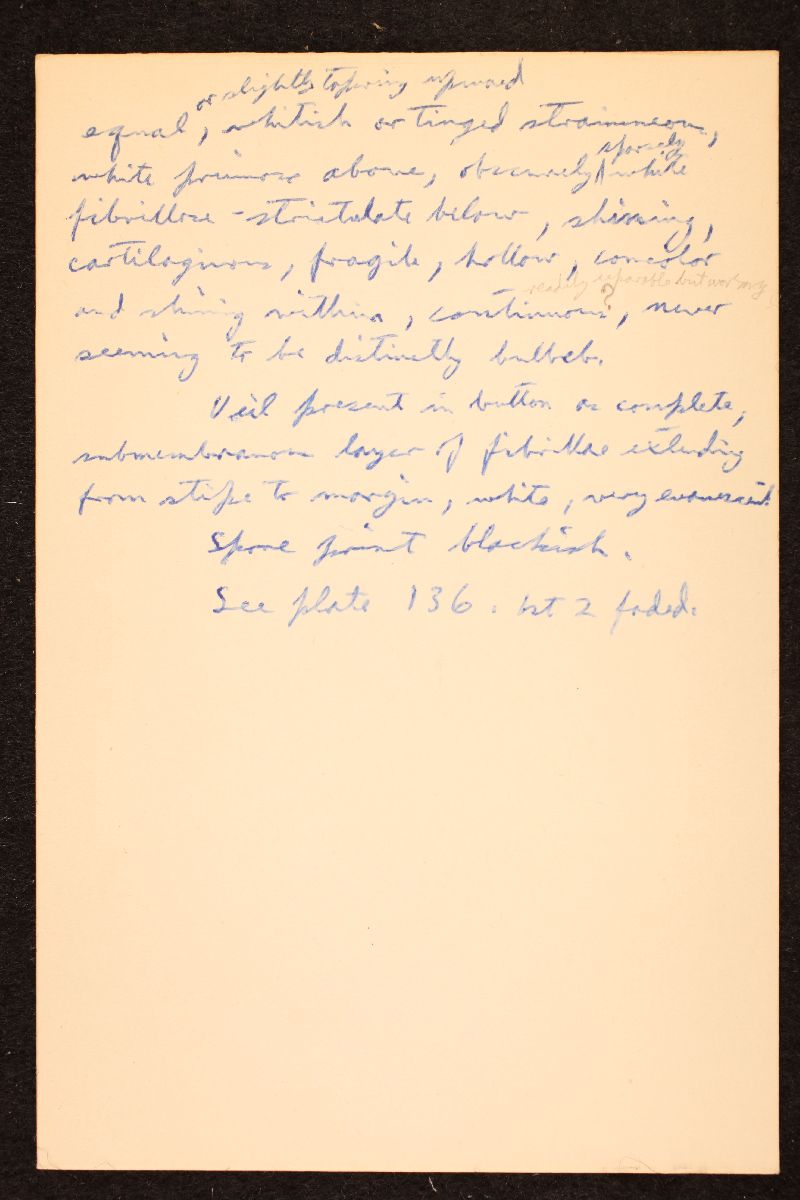 or slightly tapering upward
equal, whitish or tinged stramineous,
sparsely
white pruinose above, obscurely white
fibrillose-striatulate below, shining,
cartilaginous, fragile, hollow, concolor
readily separable but
and shining within, continuous?, never
seeming to be distinctly bulbeb.
Veil present in button as complete,
submembranous layer of fibrillae extending
from stipe to margin, white, very evanescent.
Spore print blackish.
See plate 136. 1st 2 faded.